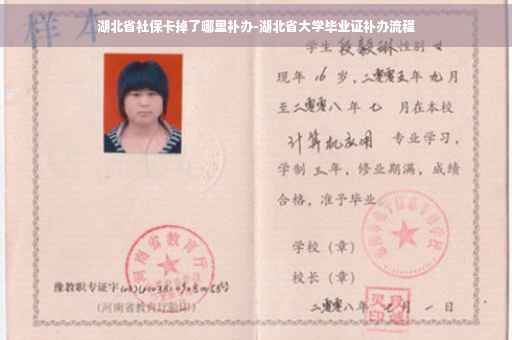 湖北省社保卡掉了哪里补办-湖北省大学毕业证补办流程
样本
学生 段毅琳 性别 女
现年 16 岁，二零零五年 九月
至二零零八年 七 月在本校
计算机应用 专业学习，
学制 三年，修业期满，成绩
合格，准予毕业
学校（章）
校长（章）
河南省教育厅
豫教职专证字
(河南省教育厅验印)
二零零八年 月 一 日